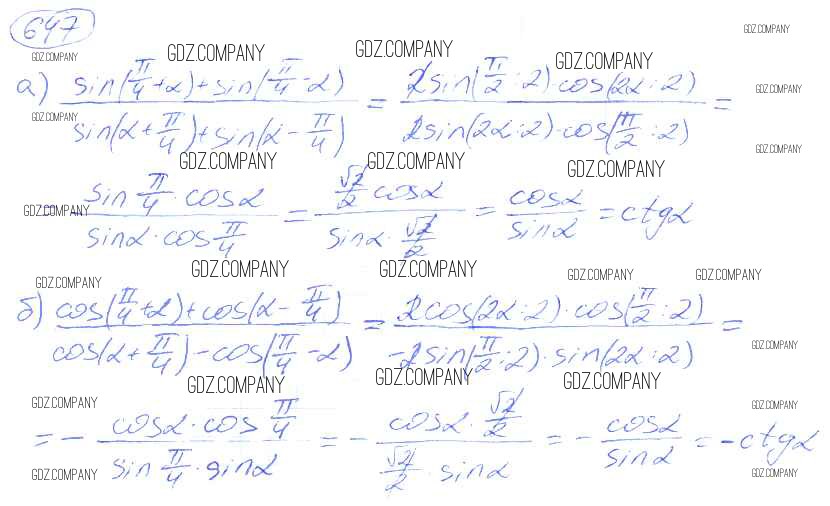 647
GDZ.COMPANY
GDZ.COMPANY GDZ.COMPANY GDZ.COMPANY GDZ.COMPANY
а) (sin(π/4+α)+sin(π/4-α))/(sin(α+π/4)+sin(α-π/4)) = (2sin(π/2:2)·cos(2α:2))/(2sin(2α:2)·cos(π/2:2)) =
GDZ.COMPANY
GDZ.COMPANY
GDZ.COMPANY
GDZ.COMPANY GDZ.COMPANY GDZ.COMPANY
= (sin π/4·cosα)/(sinα·cos π/4) = (√2/2 cosα)/(sinα·√2/2) = cosα/sinα = ctgα
GDZ.COMPANY
GDZ.COMPANY GDZ.COMPANY GDZ.COMPANY GDZ.COMPANY GDZ.COMPANY
б) (cos(π/4+α)+cos(α-π/4))/(cos(α+π/4)-cos(π/4-α)) = (2cos(2α:2)·cos(π/2:2))/(-2sin(π/2:2)·sin(2α:2)) =
GDZ.COMPANY
GDZ.COMPANY GDZ.COMPANY GDZ.COMPANY
GDZ.COMPANY GDZ.COMPANY
= - (cosα·cos π/4)/(sin π/4·sinα) = - (cosα·√2/2)/(√2/2·sinα) = - cosα/sinα = -ctgα
GDZ.COMPANY GDZ.COMPANY